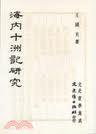 王國良著
海內十洲記研究
文史哲學集成
文史哲出版社印行